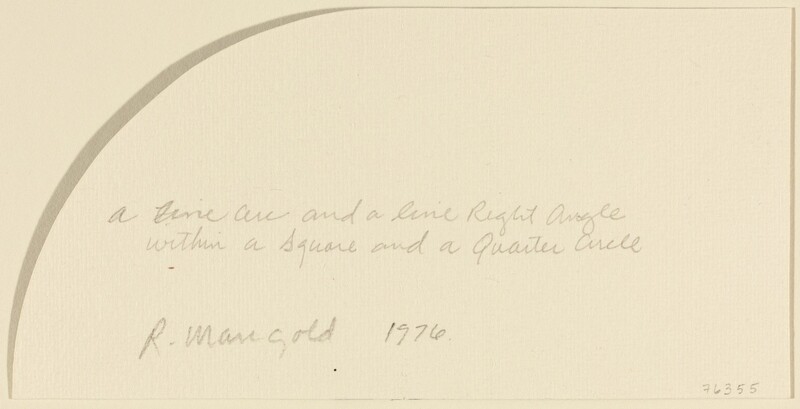 a line arc and a line Right Angle
within a square and a Quarter Circle
R. Mangold 1976.
76355